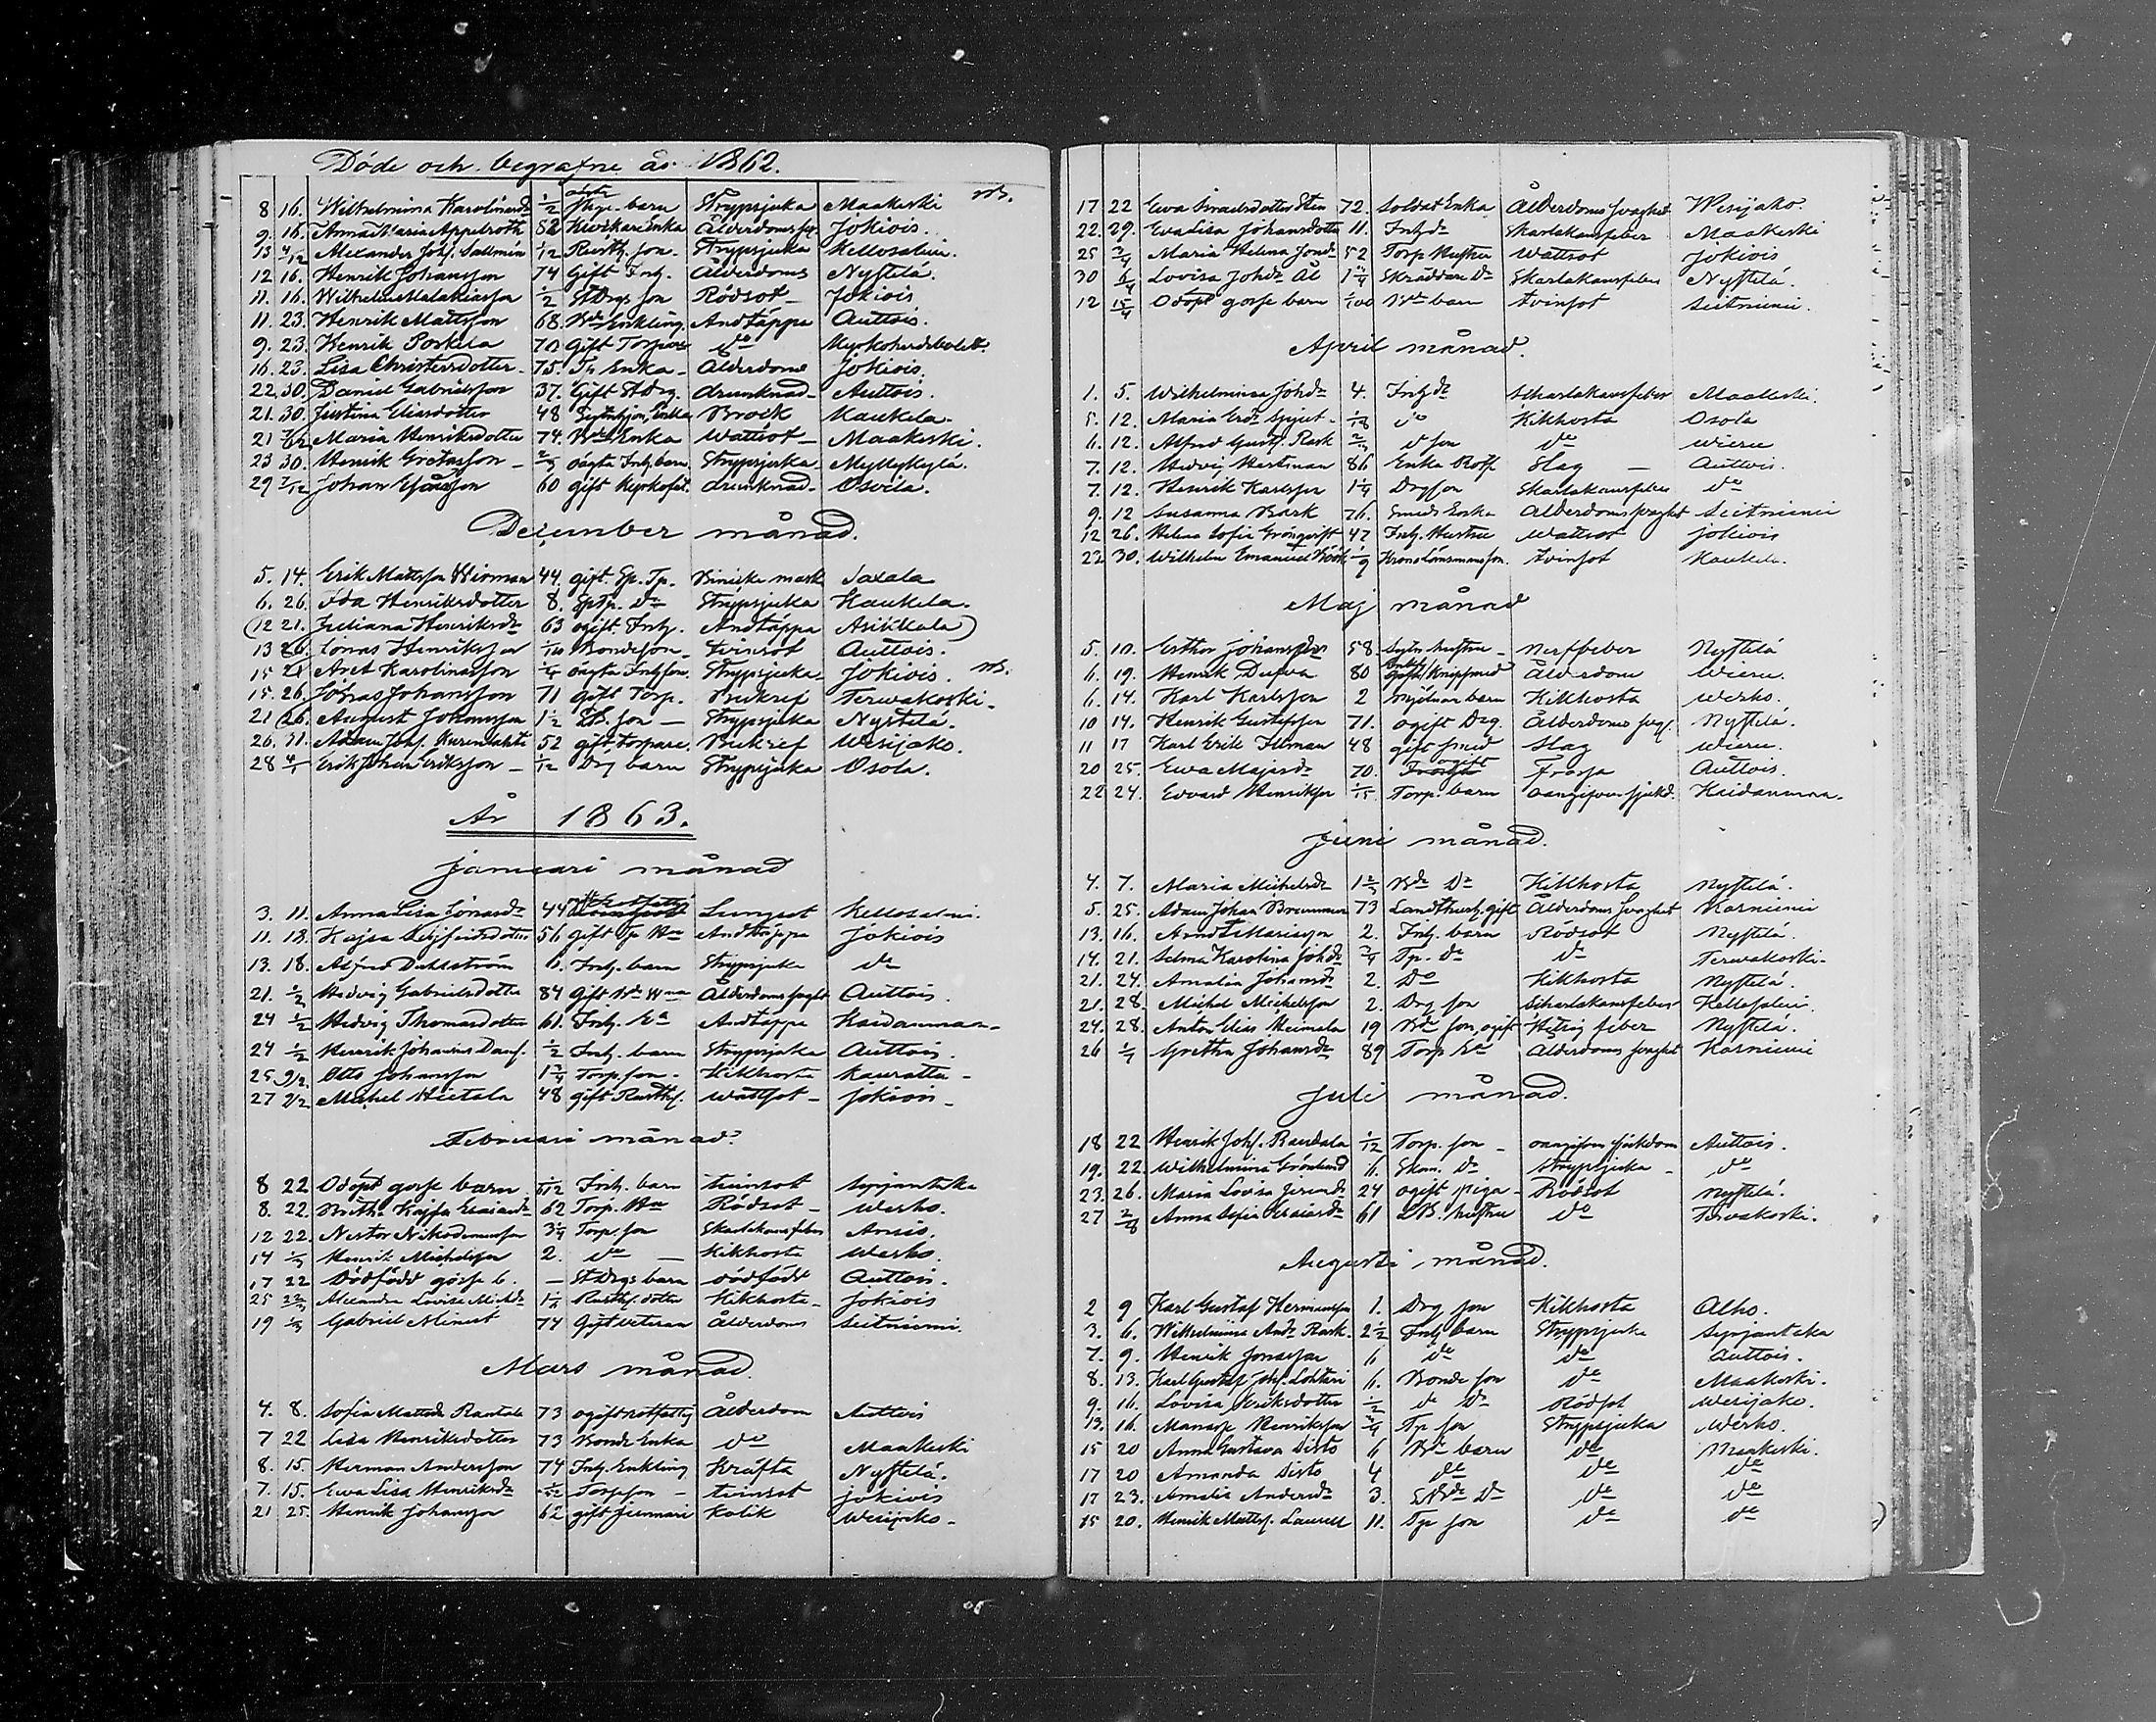 Döde och begrafne år 1862.
8 16. Wilhelmina Karolinasdr 1/2 oägta Inhys barn Strypsjuka Maakeski
9. 16. Anna Maria Appelroth 82 Enka Ålderdoms Jokiois.
13 4/12 Alexander Johs. Sallmén 1/12 Rusth. son Strypsjuka Kellosalmi.
12 16. Henrik Johansson 74 Gift Inh. Ålderdoms Nystelä.
11. 16. Wilhelm Malakiasson 1/2 St Drgs son Rödsot Jokiois
11. 23. Henrik Mattsson 68. Bde Enkling Andtäppa Auttois.
9. 23. Henrik Porkka 70 Gift Torpare do
16. 23. Lisa Christersdotter 75. Tp Enka Ålderdoms Jokiois.
22. 30. Daniel Gabrielsson 37. Gift St Drg. drunknad Auttois.
21. 30. Justina Eliasdotter 48 Enka Brock Kaukela.
21 7/12 Maria Henriksdotter 74. Bde Enka Wattsot Maakeski.
23 30. Henrik Gretasson 2/3 oägta Inh. barn Strypsjuka Myllykylä.
29 7/12 Johan 60 gift drunknad Osoila.
December månad.
5. 14. Erik Mattsson Wirman 44. gift. Sp. Tp. Binicke mask Saxala
6. 26. Ida Henriksdotter 8. Sp Tp. Dr Strypsjuka Kaukela.
(12 21. Juliana Henriksdr 63 ogift. Inh. Andtäppa Asikkala)
13 26. Jonas Henriksson 1/10 Bondeson Tvinsot Auttois.
15 21 Axel Karolinasson 1/4 oägta Inh. son Strypsjuka Jokiois.
15. 26. Johan Johansson 71 gift Torp. Bukref Terwakoski.
21 26. August Johansson 1 1/2 son Strypsjuka Nystelä.
26. 31. Adam Johs. Kurenlahti 52 gift torpare Bukref Wesijako.
28 4/1 Erik Johan Eriksson 1/12 Drg barn Strypsjuka Osola.
År 1863.
Januari månad
3. 11. Anna Lisa Jonasdr 44 Lungsot Kellosalmi.
11. 18. Kajsa Sigfridsdotter 56 gift Tp Hu Andtäppa Jokiois
13. 18. Alfred Dahlström 6. Inh. barn Strypsjuka do
21. 1/2 Hedvig Gabrielsdotter 84 Gift Bde Ålderdoms svaght Auttois.
24 1/2 Hedvig Thomasdotter 61. Inh. Ea Andtäppa Kaidanmaa
24 1/2 Henrik Johannes Dans. 1/2 Inh. barn Strypsjuka Auttois.
25 9/2. Otto Johansson 1 3/4 Torp. son Kikhosta Kauratta
27 2/2 Mickel Hietala 48 gift Rusth. Wattsot Jokiois
Februari månad.
8 22 Odöpt gosse barn Inh. barn tvinsot Syrjäntaka
8. 22. Brita Kajsa Esaiasdr 62 Torp. Hu Rödsot Werho.
12 22. Nestor Nikodemusson 3 1/4 Torp. son Skarlakansfeber Arrais.
14 1/3 Henrik Mickelsson 2. do Kikhosta Werho.
17 22 Dödfödd gosse b. St Drgs barn dödfödd Auttois.
25 22/3 Alexandra Lovisa Mickelsdr 1 1/6 Rusth. dotter Kikhosta Jokiois
19 1/3 Gabriel Minut 74 Gift Veteran Ålderdoms Seitniemi.
Mars månad.
4. 8. Sofia Mattsdr Rantala 73 ogift rotfattig Ålderdom Auttois
7 22 Lisa Henriksdotter 73 Bonde Enka do Maakeski
8. 15. Herman Andersson 74 Inh. Enkling Kräfta Nystelä.
7. 15. Ewa Lisa Henriksdr Torpson tvinsot Jokiois
21 25. Henrik Johansson 62 gift Kolik Wesijako
17 22 Ewa Israelsdotter Sten 72. Soldat Enka Ålderdoms svaghet Wesijako.
22. 29. Ewa Lisa Johansdotter 11. Inh. dr Skarlakansfeber Maakeski
25 3/4 Maria Helena Jonsdr 52 Torp. Hustru Wattsot Jokiois
30 6/4 Lovisa Johsdr Ål 1 3/4 Skräddare Dr Skarlakansfeber Nystelä.
12 15/4 Odöpt gosse barn 1/100 Bde barn tvinsot Seitniemi.
April månad.
1. 5. Wilhelmina Johdr 4. Inh dr Scharlakansfeber Maakeski.
5. 12. Maria 1/18 do Kikhosta Osola
6. 12. Alfred Gust. Rask son do Wieru
7. 12. Hedvig Hertman 86 Enka Slag Auttois.
7. 12. Henrik Karlsson 1 1/4 Drgson Skarlakansfeber do
9. 12 Susanna Bark 76. Smeds Enka Ålderdoms svaght Seitniemi
12 26. Helena Sofia Grönqvist 47 Inh. Hustru Wattsot Jokiois
22 30. Wilhelm Emanuel Böök 1/9 Kronolänsmans son. tvinsot Kaukela.
Maj månad
5. 10. Esther Johansdr 58. hustru Nerffeber Nystelä
6. 19. Henrik Dufva 80 Ålderdom Wieru.
6. 14. Karl Karlsson 2 mjölnar barn Kikhosta Werho.
10 14. Henrik Gustafsson 71. ogift Drg. Ålderdoms svag. Nystelä.
11 17 Karl Erik Illman 48 gift smed Slag Wieru.
20 25. Ewa Majasdr 70. ogift Frossa Auttois.
22 24. Edvard Henriksson 1/15 Torp. barn oangifven sjukd. Kaidanmaa.
Juni månad.
4. 7. Maria Mickelsdr 1 2/3 Bde Dr Kikhosta Nystelä.
5. 25. Adam Johan Brummer 73 Landthush. gift Ålderdoms svaghet Karniemi
13. 16. Arndt Mariasson 2. Inh. barn Rödsot Nystelä.
14. 21. Selma Karolina Johdr 3/4 Tp. Dr do Terwakoski.
21. 24. Amalia Johansdr 2. Do Kikhosta Nystelä.
21. 28. Mickel Mickelsson 2. Drg son Scharlakansfeber Kellosalmi.
24. 28. Anton Elias Heimala 19 Bde son, ogift Hetsig feber Nystelä.
26 1/7 Gretha Johansdr 89 Torp Ea Ålderdoms svaghet Karniemi
Juli månad.
18 22 Henrik Johs. Randala 1/12 Torp. son oangifven sjukdom Auttois.
19. 22. Wilhelmina Grönlund 6. Skom. Dr Strypsjuka do
23. 26. Maria Lovisa 24 ogift piga Rödsot Nystelä.
27 2/8 Anna Sofia Esaiasdr 61 hustru do Terwakoski.
Augusti månad.
2 9 Karl Gustaf Hermansson 1. Drg son Kikhosta Alho.
3. 6. Wilhelmina Andr Rask. 2 1/2 Inh barn Strypsjuka Syrjäntaka
7. 9. Henrik Jonasson 6 do do Auttois.
8. 13. Karl Gustaf Johs. Lohtari 6. Bonde son do Maakeski.
9. 16. Lovisa Eriksdotter 1/2 do Dr Rödsot Wesijako.
13. 16. Manasse Henriksson 3/4 Tp son Strypsjuka Werho.
15 20 Anna Gustava Sisto 6 Bde barn do Maakeski.
17 20 Amanda Sisto 4 do do do
17 23. Amalia Andersdr 3. Dr do do
15 20. Henrik Matts. Laurell 11. Tp son do do